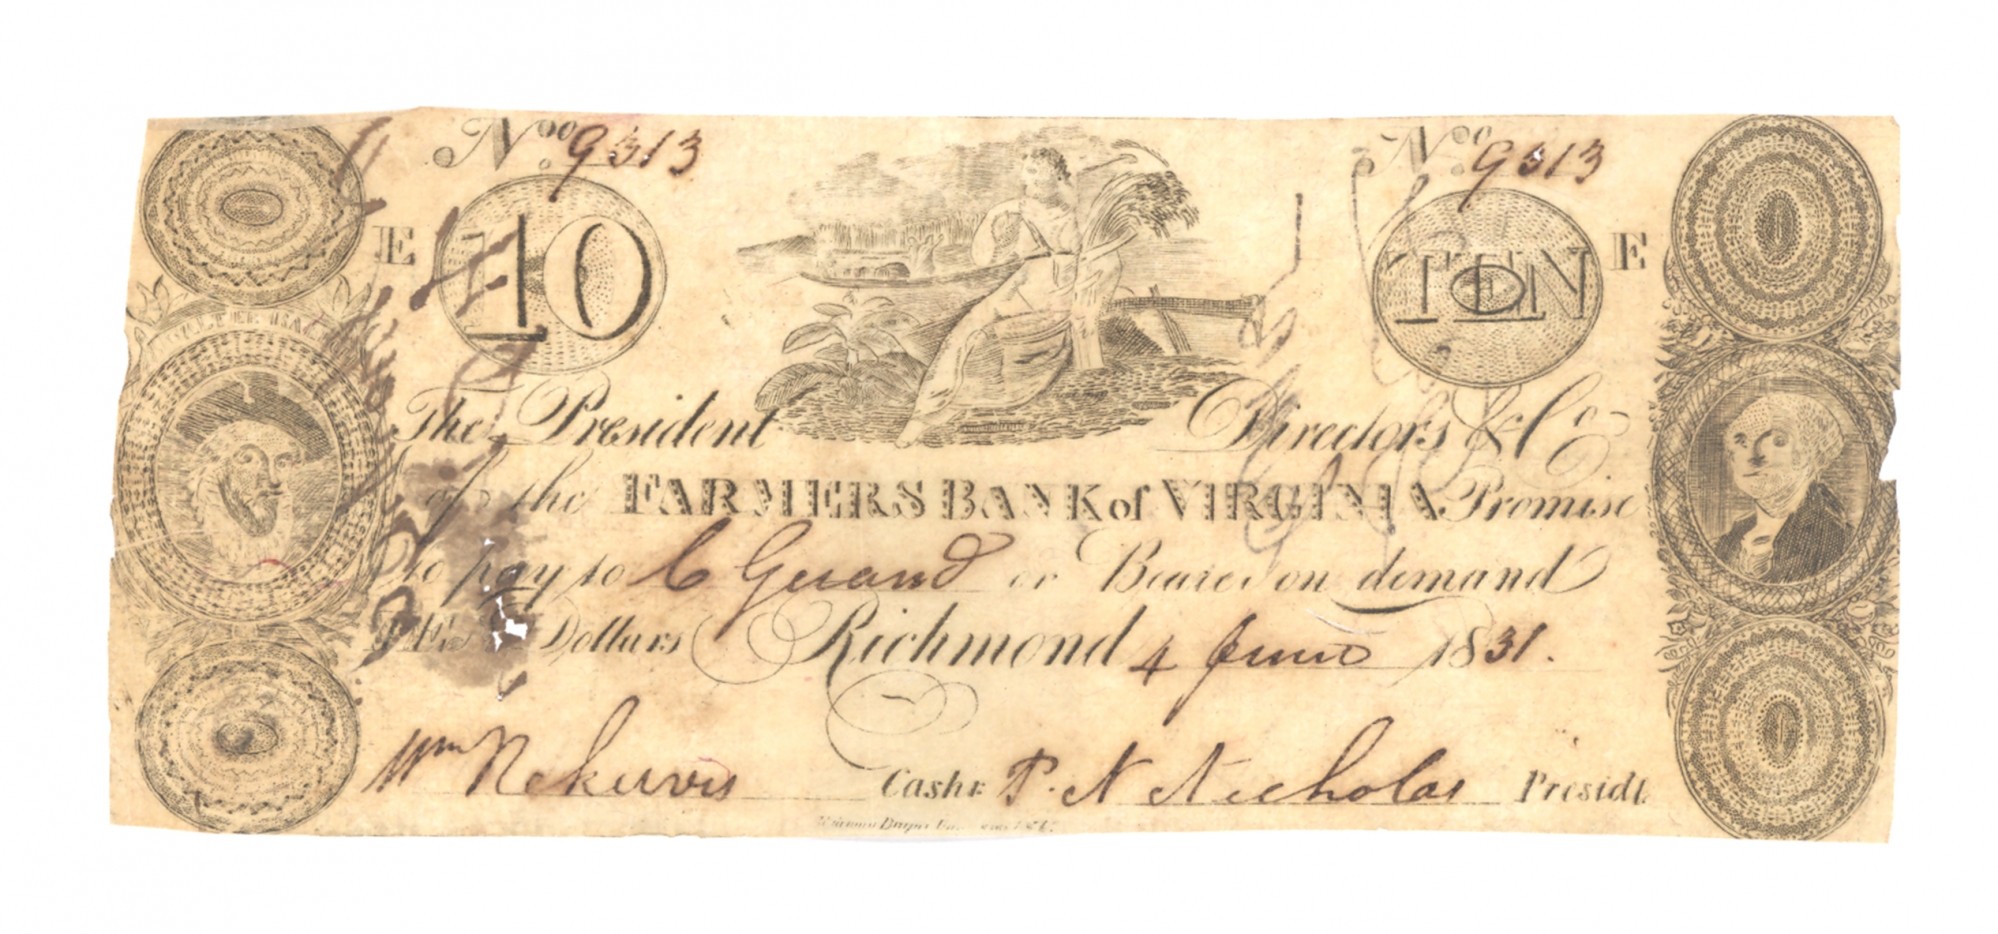 No. 9313
No. 9313
E
10
TEN
E
WALTER RA
The President Directors & Co.
of the FARMERS BANK of VIRGINIA Promise
to pay to C Gerand or Bearer on demand
TEN Dollars Richmond 4 June 1831.
Wm Nekervis Cashr. P. N. Nicholas Presidt.